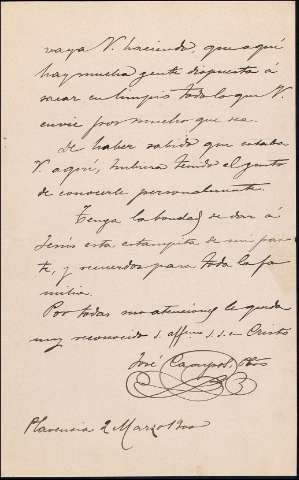 vaya V. haciendo, que aquí
hay mucha gente dispuesta á
sacar en limpio todo lo que V.
envíe por mucho que sea.
De haber sabido que estaba
V. aquí, hubiera tenido el gusto
de conocerle personalmente.
Tenga la bondad de dar á
Jesús esta estampita de mi par-
te, y recuerdos para toda la fa-
milia.
Por todas sus atenciones le queda
muy reconocido s. affmo s. s. en Cristo
José
Plasencia 2 Marzo 1900